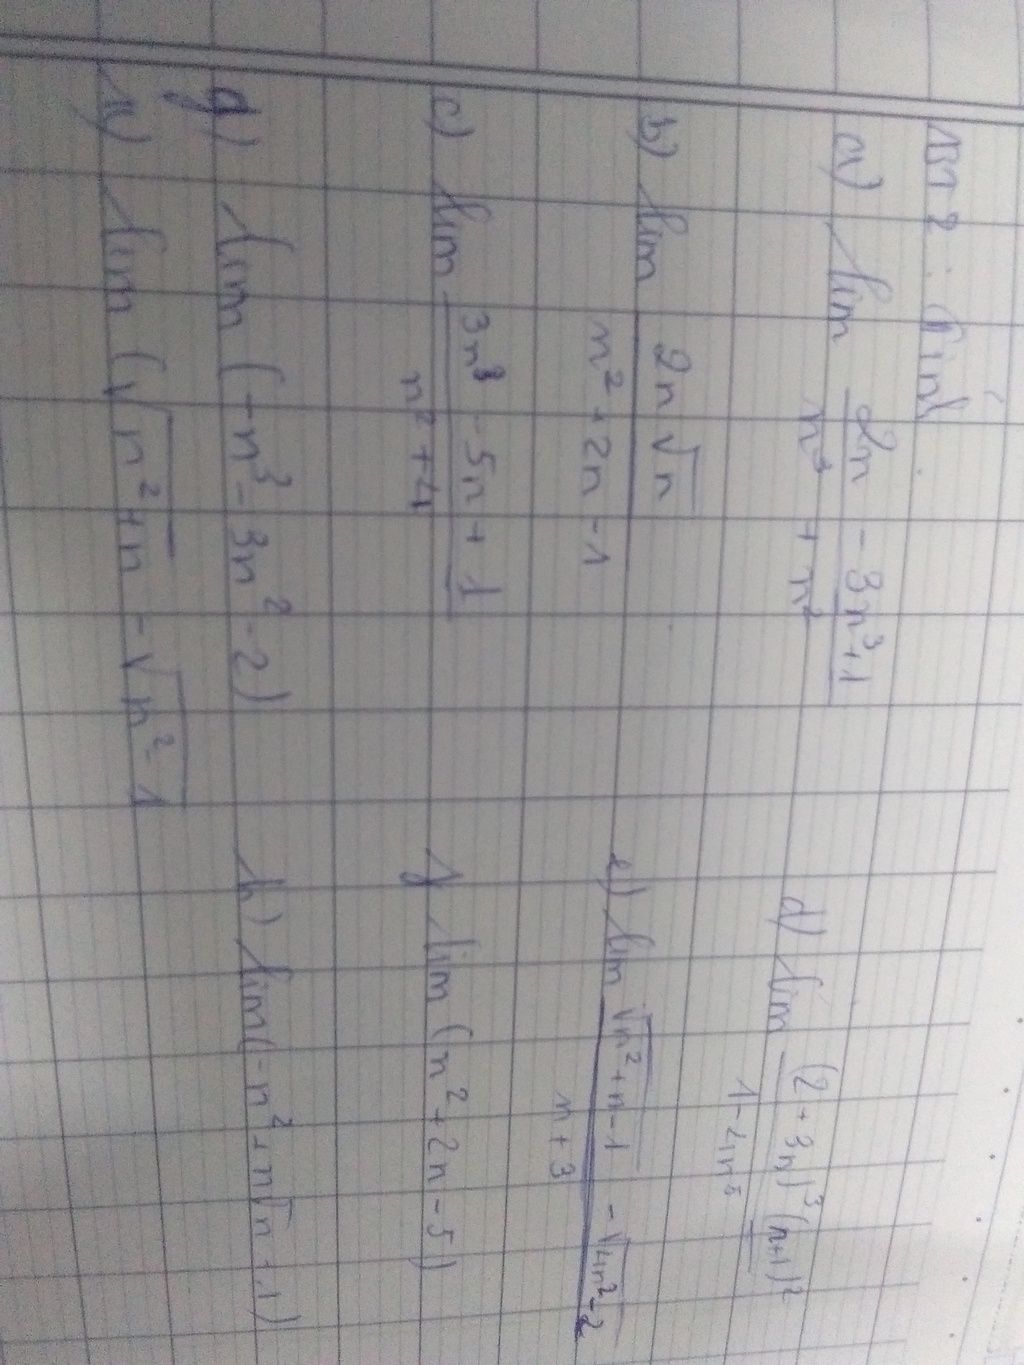 BT 2 : Tính
a) lim (2n - 3n³ + 1) / (n³ + n²)
d) lim (2 + 3n)³ (n+1)² / (1 - 4n⁵)
b) lim 2n√n / (n² + 2n - 1)
e) lim (√(n² + n - 1) - √(4n² - 2)) / (n + 3)
c) lim (3n³ - 5n + 1) / (n² + 4)
f) lim (n² + 2n - 5)
g) lim (-n³ - 3n² - 2)
h) lim (-n² + n√n + 1)
lim (√(n² + n) - √(n² - 1))